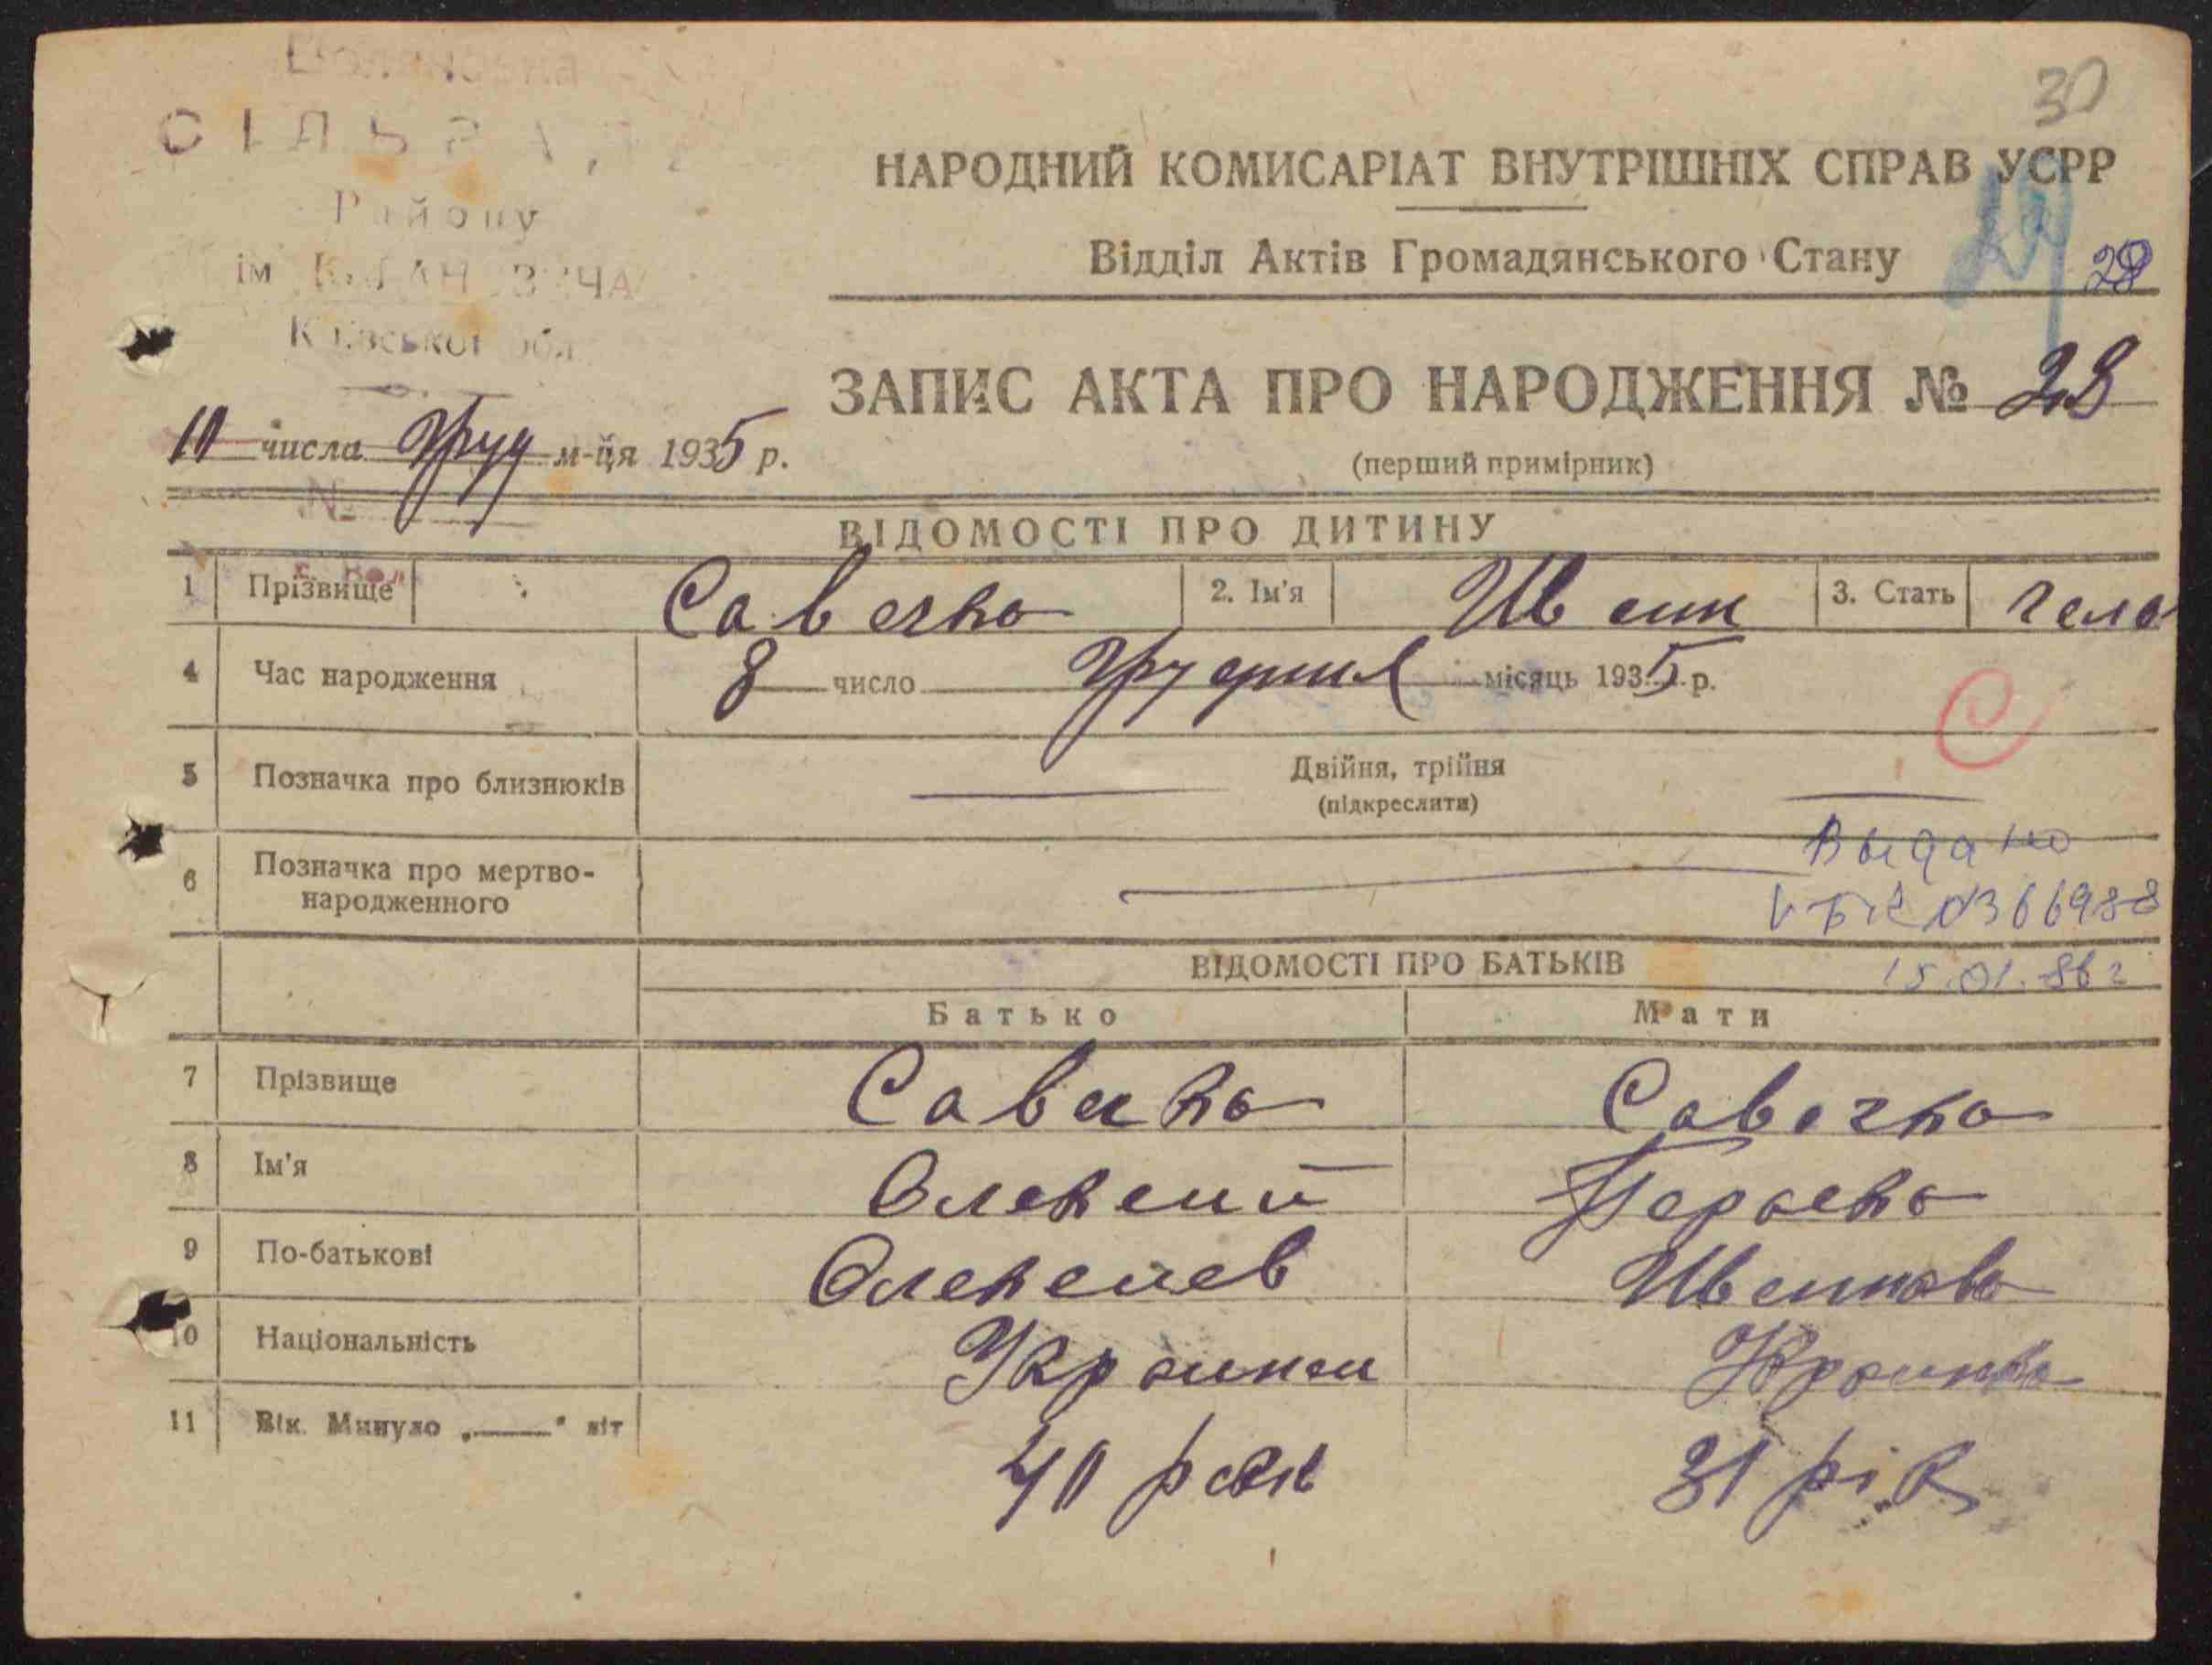 СІЛЬРАДА
Району
ім КАГАНОВИЧА
Київської обл
30
НАРОДНИЙ КОМИСАРІАТ ВНУТРІШНІХ СПРАВ УСРР
Відділ Актів Громадянського Стану
29
28
ЗАПИС АКТА ПРО НАРОДЖЕННЯ № 28
10 числа Груд м-ця 1935 р.
(перший примірник)
№
ВІДОМОСТІ ПРО ДИТИНУ
1 Прізвище Савечко 2. Ім'я Иван 3. Стать чело
4 Час народження 8 число Грудник місяць 1935 р.
С
5 Позначка про близнюків Двійня, трійня
(підкреслити)
Выдано
6 Позначка про мертво-
народженного
V-БК №366988
ВІДОМОСТІ ПРО БАТЬКІВ
15.01.86 г
Батько Мати
7 Прізвище Савечко Савечко
8 Ім'я Олексий Параска
9 По-батькові Олексеев Иванова
10 Національність Украинец Украинка
11 Вік. Минуло „——" літ 40 рок 31 рік